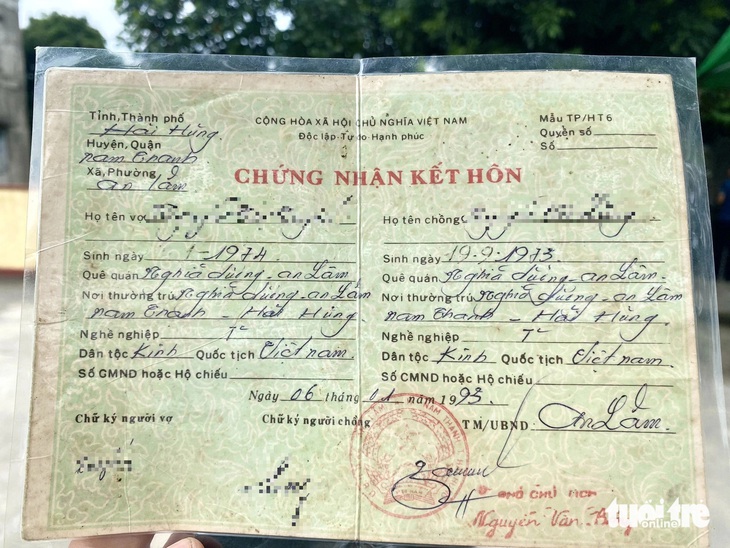 Tỉnh, Thành phố
Hải Hưng
Huyện, Quận
nam Thanh
Xã, Phường
An Lâm
CỘNG HÒA XÃ HỘI CHỦ NGHĨA VIỆT NAM
Độc lập-Tự do-Hạnh phúc
Mẫu TP/HT6
Quyển số
Số
CHỨNG NHẬN KẾT HÔN
Họ tên vợ
Họ tên chồng
Sinh ngày 1-1974
Sinh ngày 19-9-1973
Quê quán Nghĩa dương-an Lâm
Quê quán Nghĩa dương-an Lâm
Nơi thường trú Nghĩa dương-an Lâm
nam Thanh - Hải Hưng
Nơi thường trú Nghĩa dương-an Lâm
nam Thanh - Hải Hưng
Nghề nghiệp
Nghề nghiệp
Dân tộc Kinh Quốc tịch Việt nam
Dân tộc Kinh Quốc tịch Việt nam
Số CMND hoặc Hộ chiếu
Số CMND hoặc Hộ chiếu
Ngày 06 tháng 01 năm 1993
Chữ ký người vợ
Chữ ký người chồng
TM/UBND An Lâm
Nguyễn Văn
tuổi trẻ
online